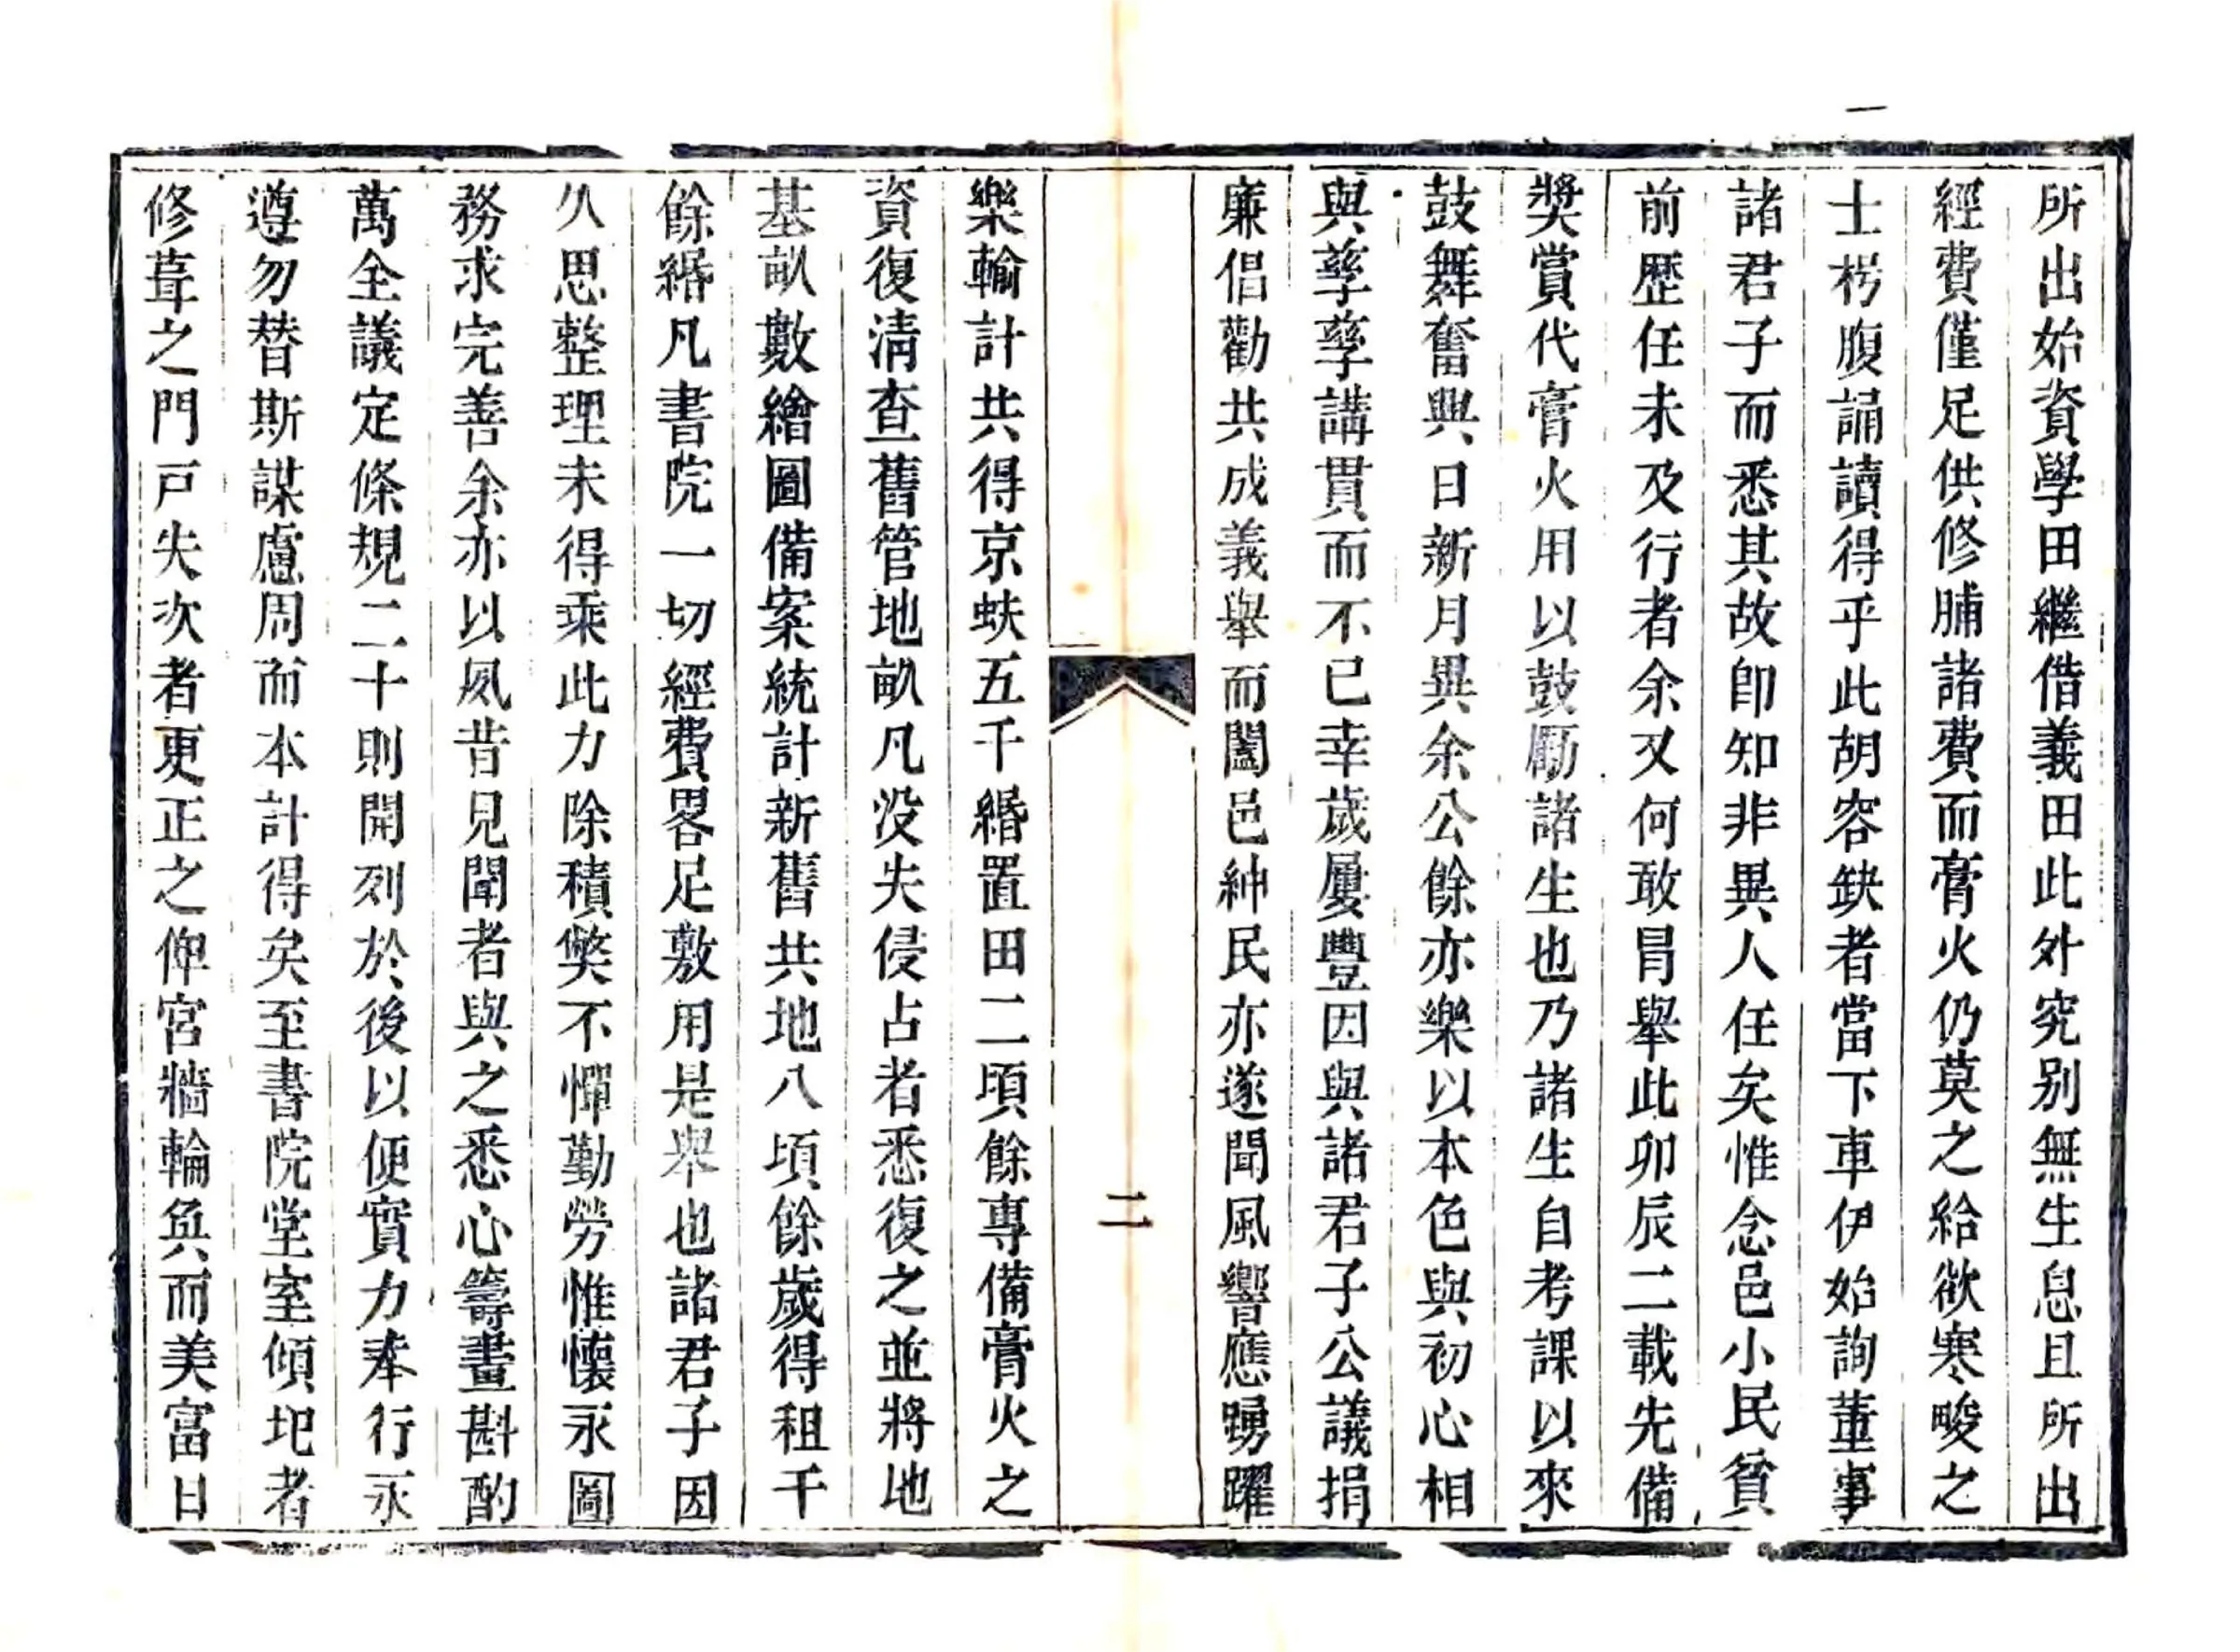 所出始資學田繼借義田此外究别無生息且所出
經費僅足供修脯諸費而膏火仍莫之給欲寒畯之
士枵腹誦讀得乎此胡容缺者當下車伊始詢董事
諸君子而悉其故卽知非異人任矣惟念邑小民貧
前歴任未及行者余又何敢冐舉此卯辰二載先備
奬賞代膏火用以鼓厲諸生也乃諸生自考課以來
鼓舞奮興日新月異余公餘亦樂以本色與初心相
與孳孳講貫而不已幸歲屢豐因與諸君子公議捐
廉倡勸共成義舉而闔邑紳民亦遂聞風響應踴躍
二
樂輸計共得京蚨五千緡置田二頃餘專備膏火之
資復清查舊管地畝凡没失侵占者悉復之並將地
基畝數繪圖備案統計新舊共地八頃餘歲得租千
餘緡凡書院一切經費畧足敷用是舉也諸君子因
久思整理未得乘此力除積獘不憚勤勞惟懷永圖
務求完善余亦以夙昔見聞者與之悉心籌畫斟酌
萬全議定條規二十則開列於後以便實力奉行永
遵勿替斯謀慮周而本計得矣至書院堂室傾圯者
修葺之門戸失次者更正之俾宮牆輪奐而美富日